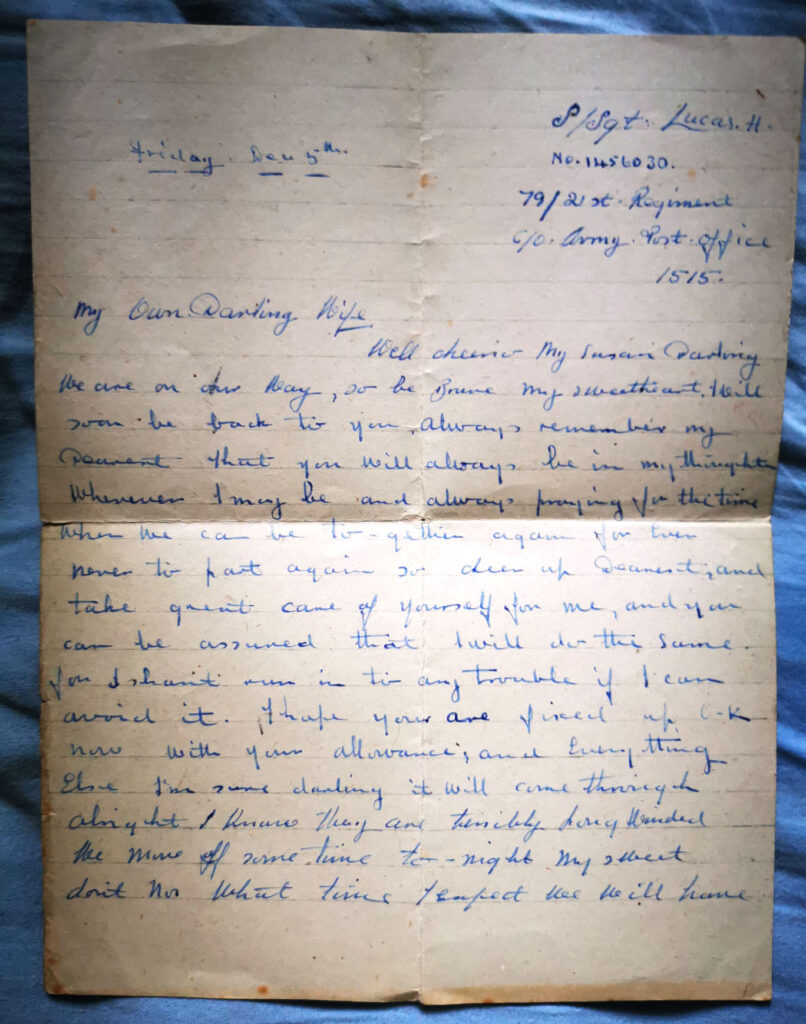 S/Sgt. Lucas. H.
Friday. Dec 5th.
No. 1456030.
79/21st. Regiment
c/o. Army. Post. Office
1515.
My Own Darling Wife
Well cheerio My Susan Darling
We are on our Way, so be Brave my sweetheart, I Will
soon be back to you, always remember my
Dearest that you Will always be in my thoughts
Wherever I may be and always praying for the time
When We can be to-gether again for Ever
never to part again so cheer up Dearest, and
take great care of yourself for me, and you
can be assured that I will do the same.
for I shan't run in to any trouble if I can
avoid it. I hope your are fixed up O-K
now With your allowance, and Everything
Else I'm sure darling it Will come through
alright I Know They are terribly Long Winded
We move off some time to-night My sweet
don't No What time I expect We Will have